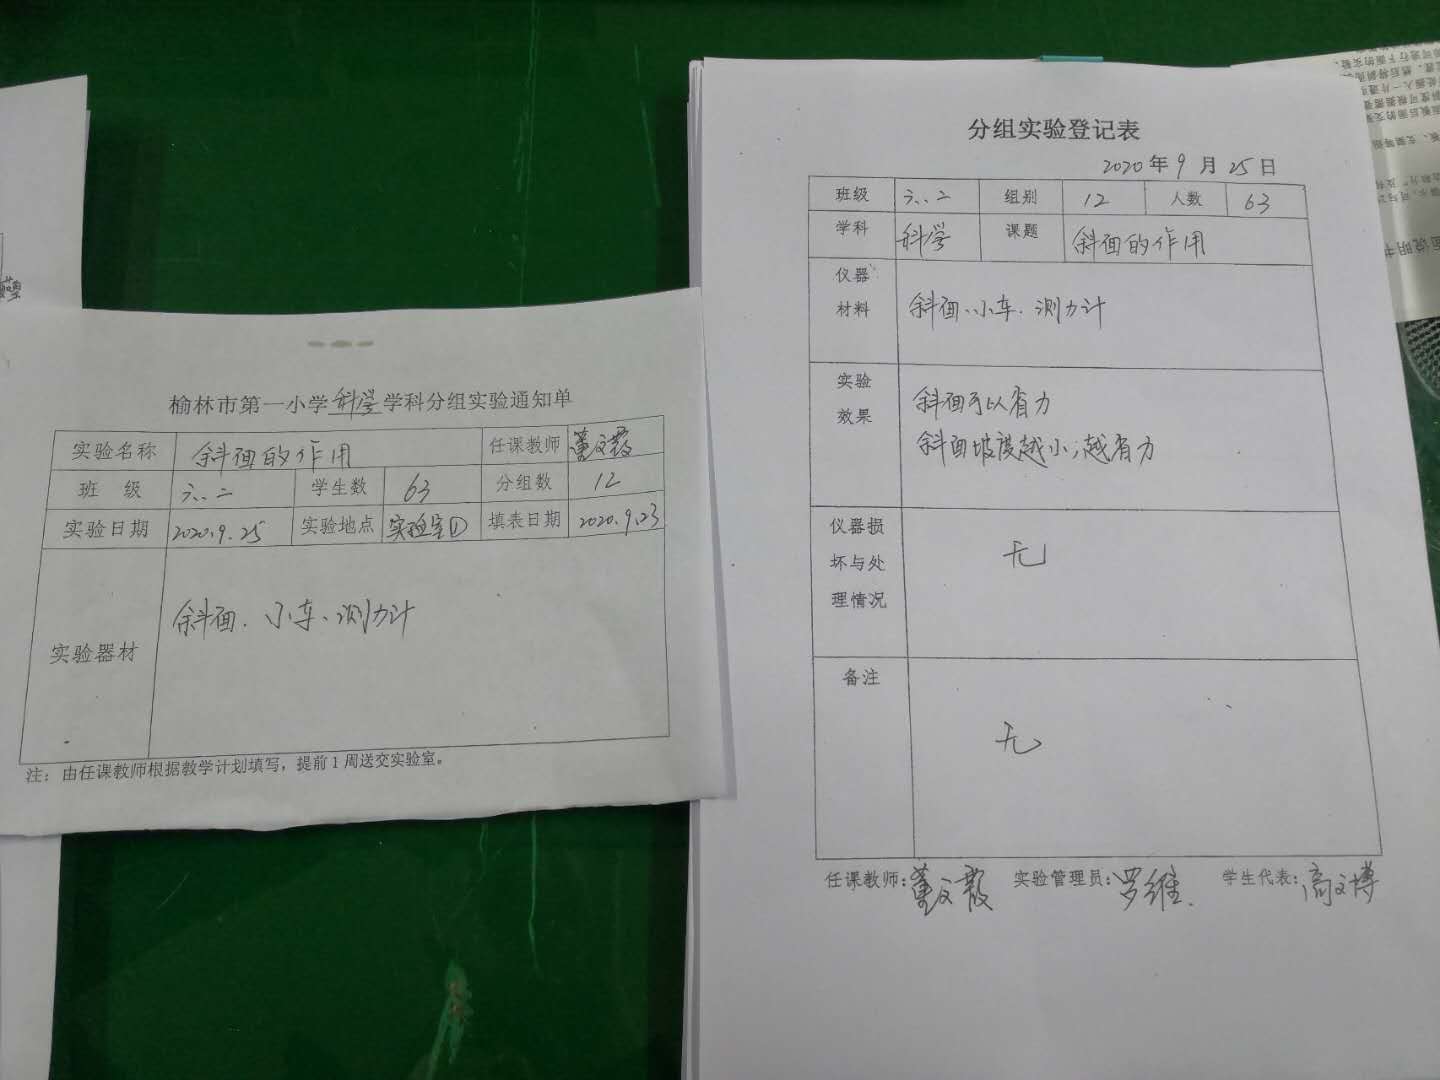 榆林市第一小学科学学科分组实验通知单
实验名称 斜面的作用 任课教师 董文霞
班 级 六、二 学生数 63 分组数 12
实验日期 2020.9.25 实验地点 实验室① 填表日期 2020.9.23
实验器材 斜面、小车、测力计
注：由任课教师根据教学计划填写，提前1周送交实验室。
分组实验登记表
2020年9月25日
班级 六、二 组别 12 人数 63
学科 科学 课题 斜面的作用
仪器
材料 斜面、小车、测力计
实验
效果
斜面可以省力
斜面坡度越小，越省力
仪器损
坏与处
理情况
无
备注
无
任课教师：董文霞 实验管理员：罗维 学生代表：高文博